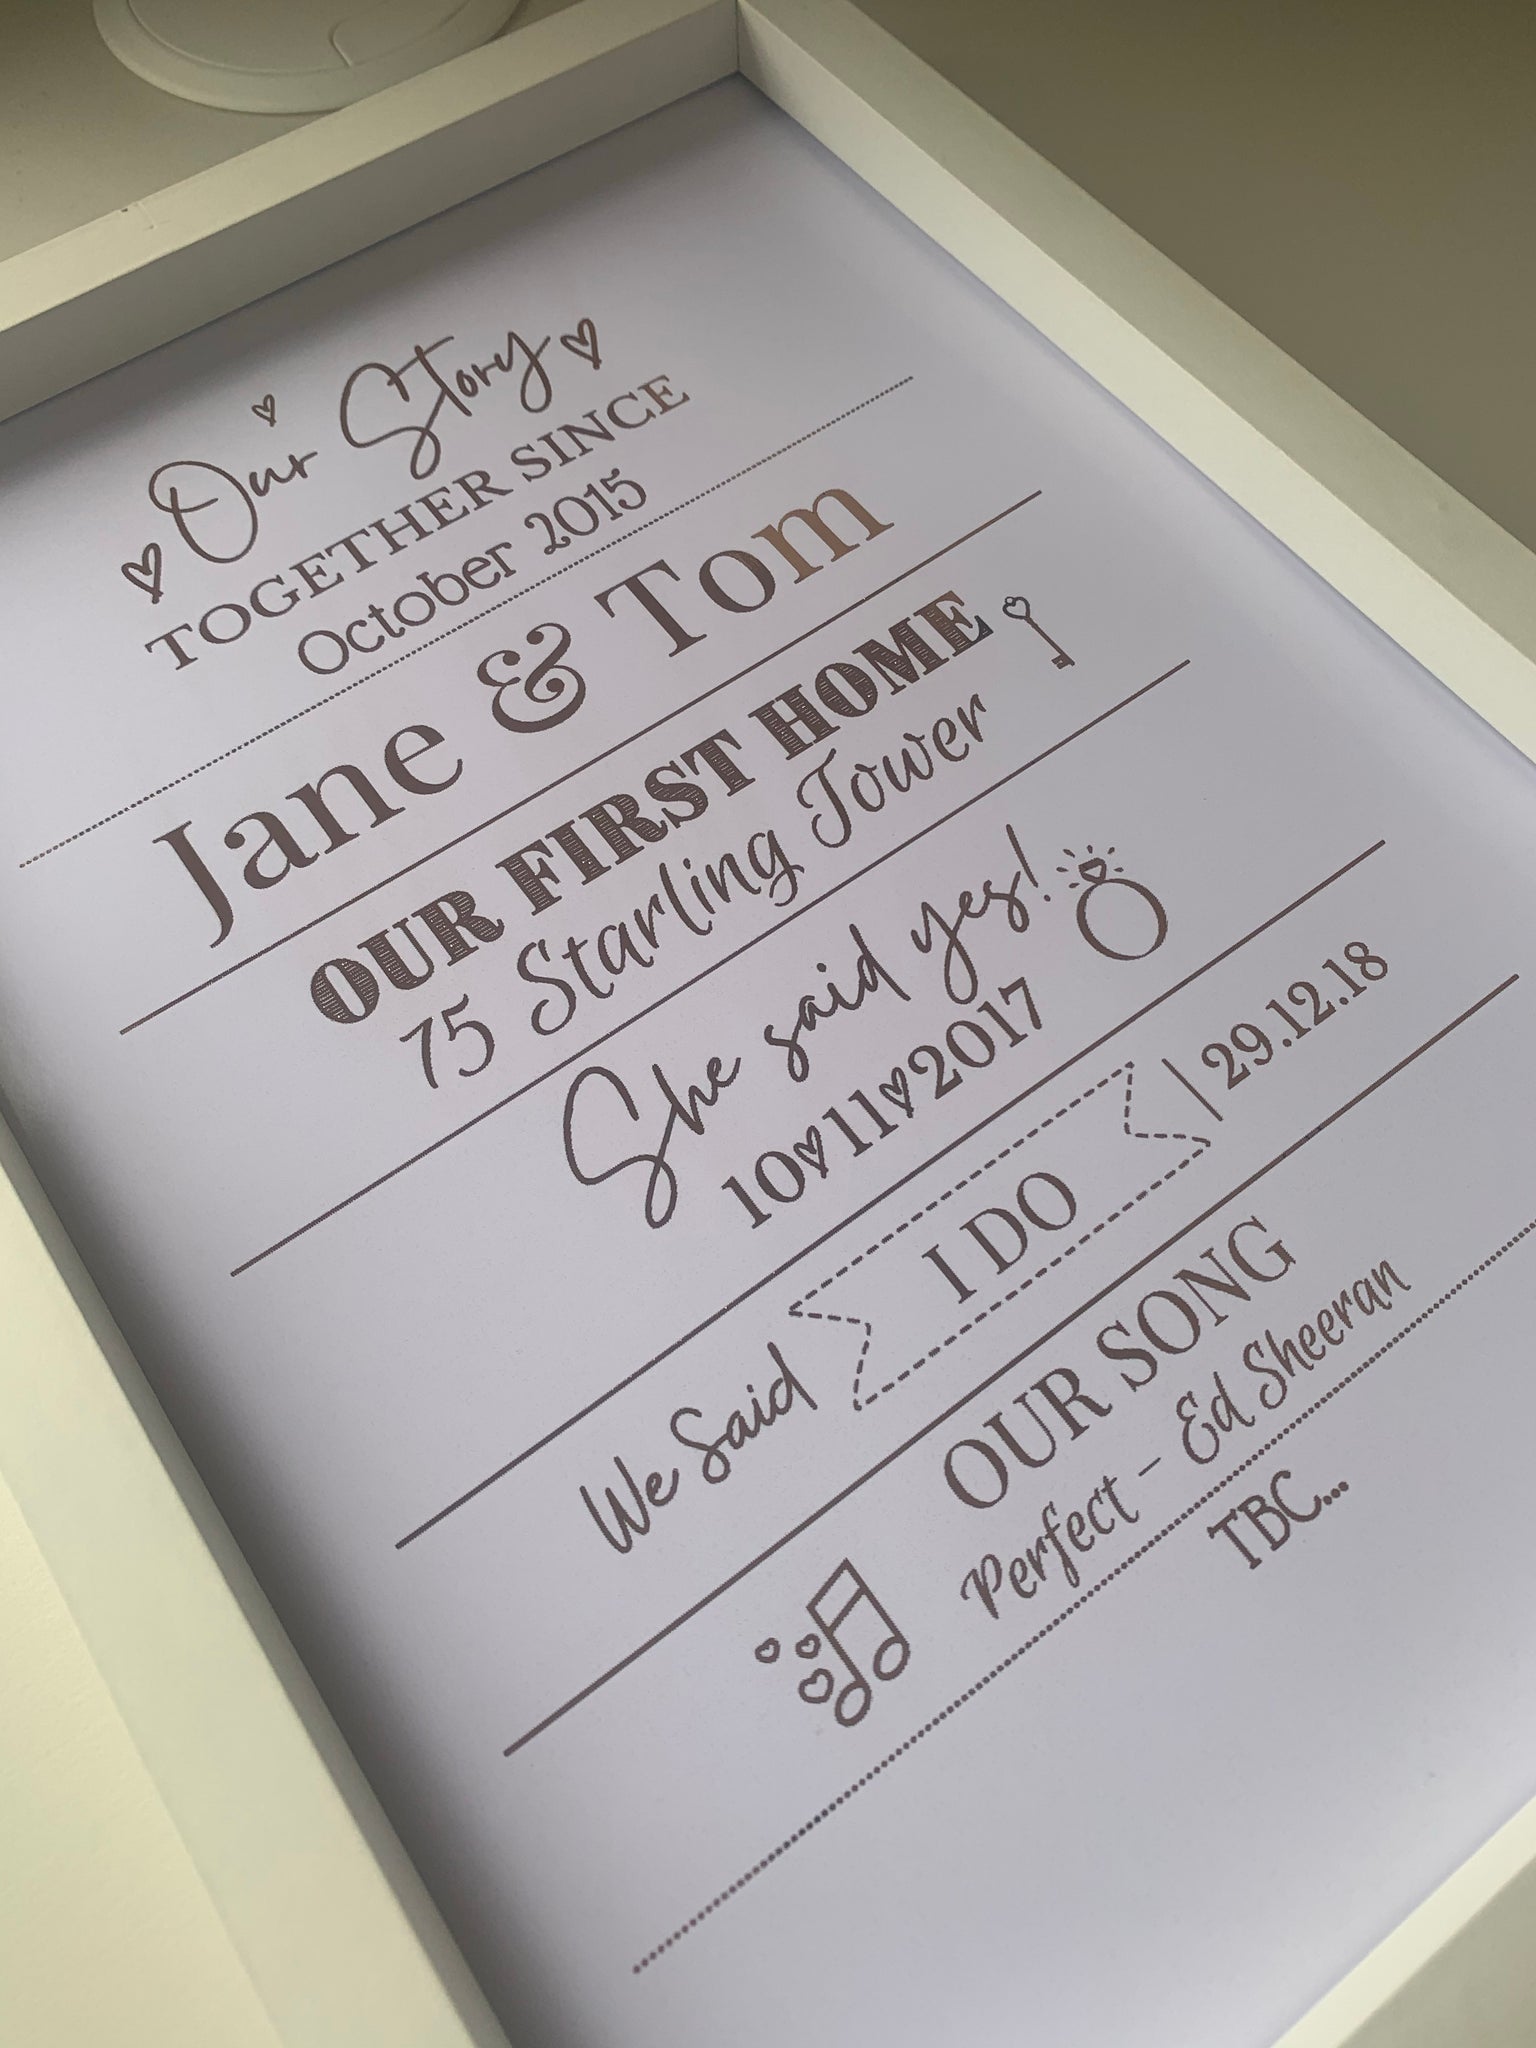 Our Story
TOGETHER SINCE
October 2015
Jane & Tom
OUR FIRST HOME
75 Starling Tower
She said yes!
10♥11♥2017
We Said I DO | 29.12.18
OUR SONG
Perfect - Ed Sheeran
TBC...